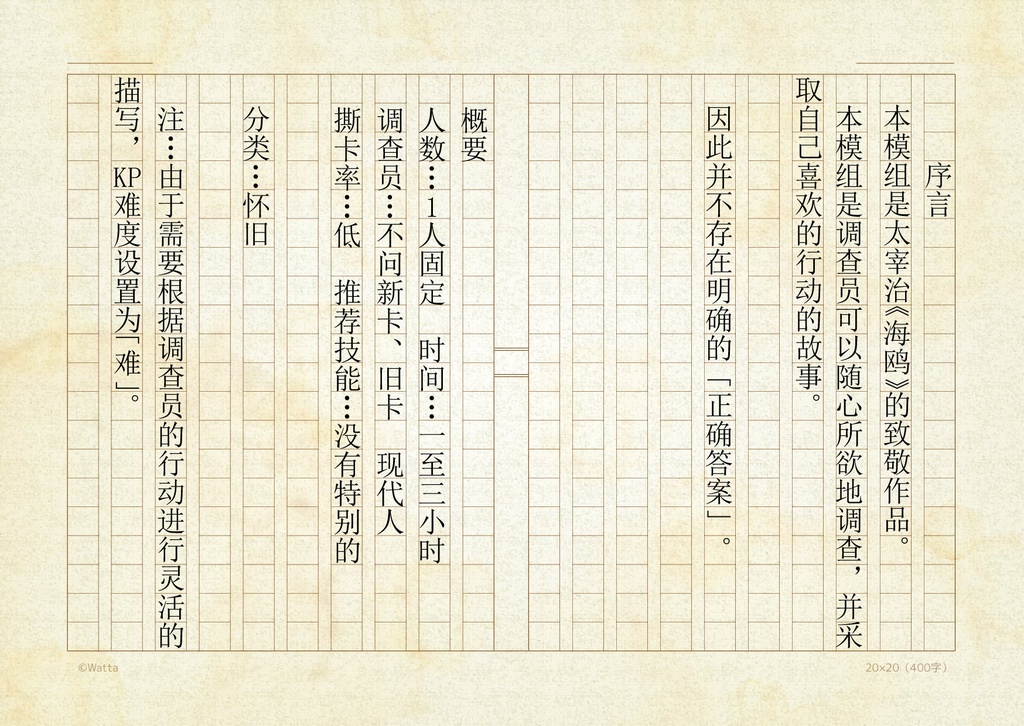 序言
本模组是太宰治《海鸥》的致敬作品。
本模组是调查员可以随心所欲地调查，并采
取自己喜欢的行动的故事。
因此并不存在明确的「正确答案」。
概要
人数…1人固定　时间…一至三小时
调查员…不问新卡、旧卡　现代人
撕卡率…低　推荐技能…没有特别的
分类…怀旧
注…由于需要根据调查员的行动进行灵活的
描写，KP难度设置为「难」。
©Watta
20×20（400字）